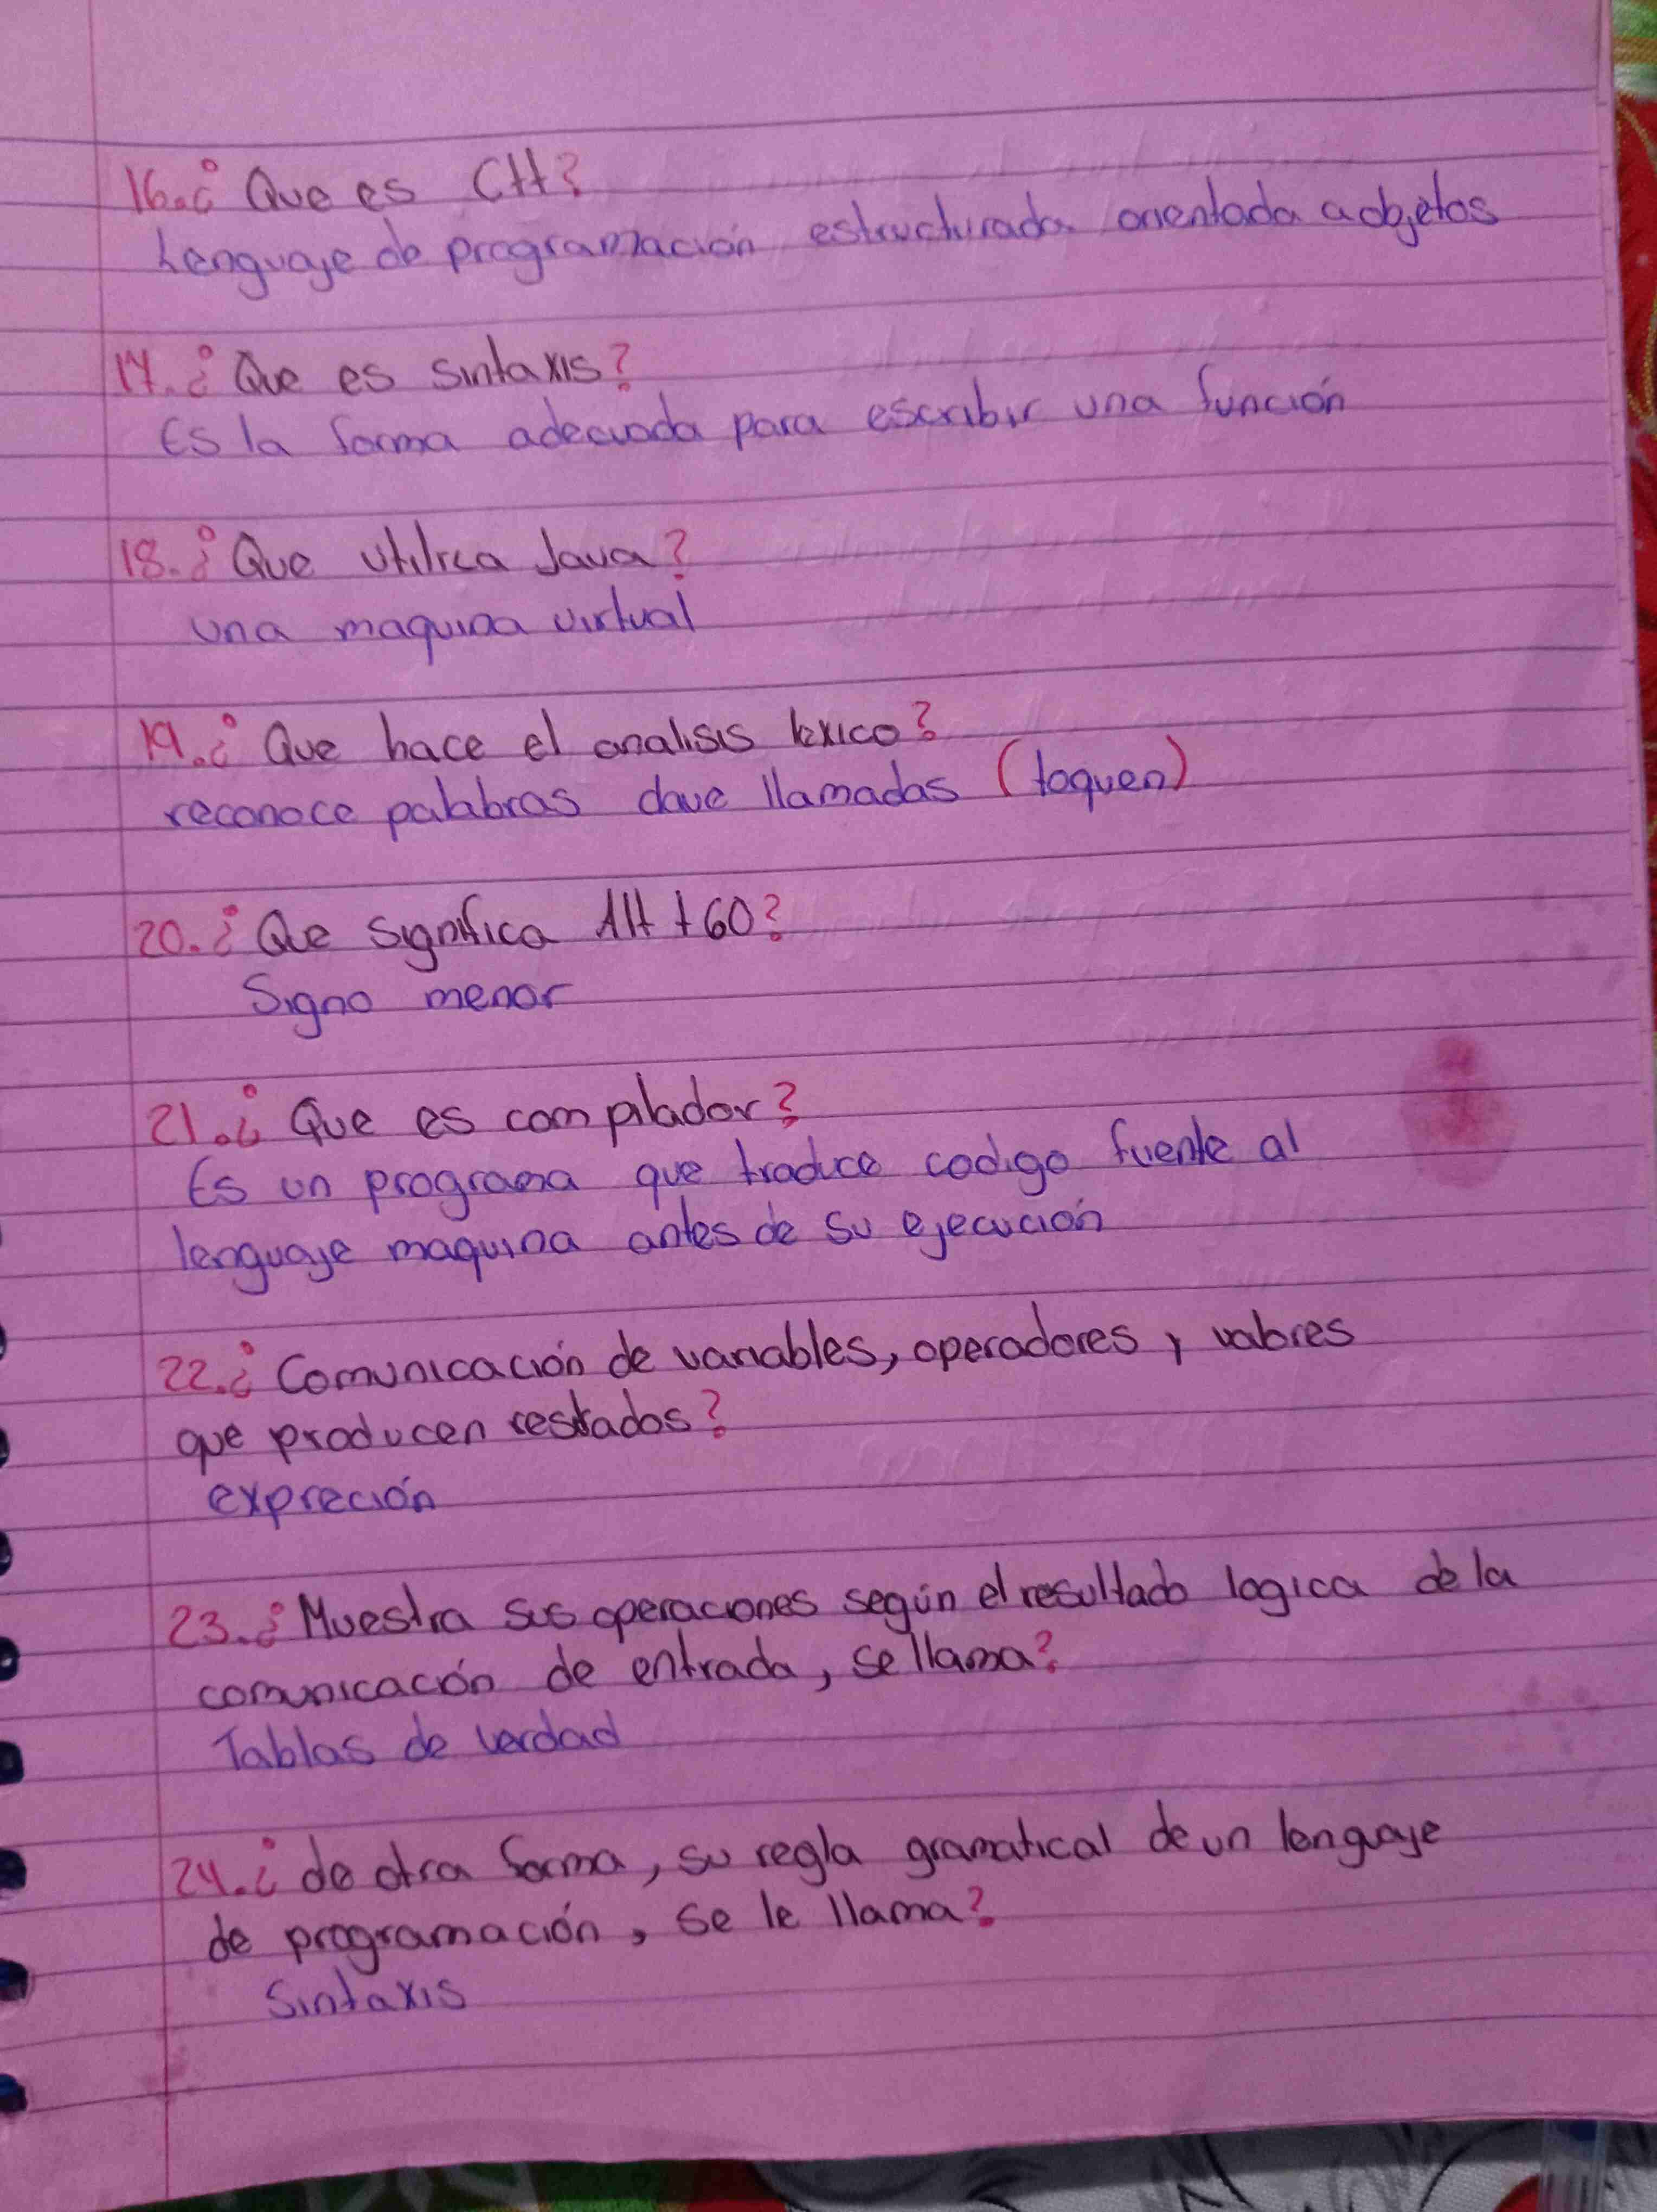 16.¿ Que es C++?
Lenguaje de programación estructurada orientada a objetos
17.¿ Que es sintaxis?
Es la forma adecuada para escribir una función
18.¿ Que utiliza Java?
una maquina virtual
19.¿ Que hace el analisis lexico?
reconoce palabras clave llamadas (toquen)
20.¿ Que significa Alt +60?
Signo menor
21.¿ Que es compilador?
Es un programa que traduce codigo fuente al
lenguaje maquina antes de su ejecución
22.¿ Comunicación de variables, operadores y valores
que producen resltados?
expreción
23.¿ Muestra sus operaciones según el resultado logica de la
comunicación de entrada, se llama?
Tablas de verdad
24.¿ de otra forma, su regla gramatical de un lenguaje
de programación, se le llama?
Sintaxis